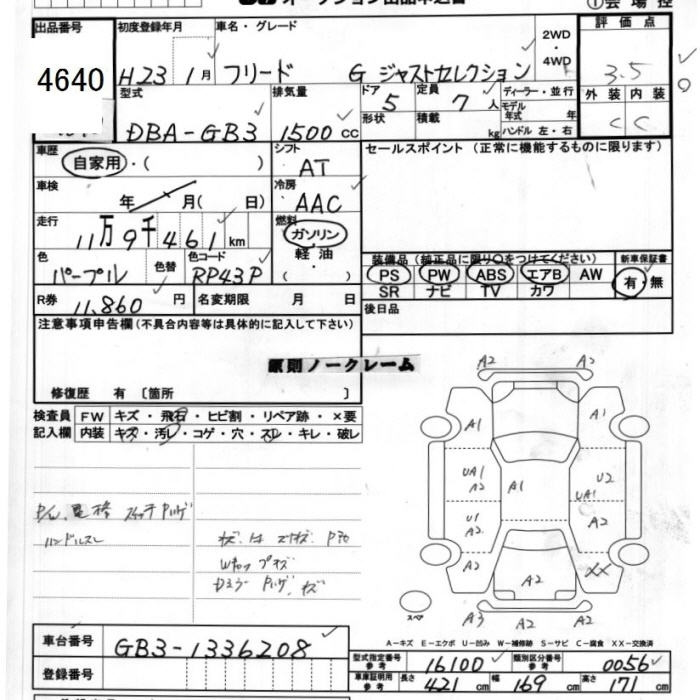 オークション出品申込書
①会場控
出品番号 初度登録年月 車名・グレード 2WD・4WD 評価点
4640 H23 1月 フリード G ジャストセレクション 3.5
型式 排気量 ドア 定員 ディーラー・並行 外装 内装
DBA-GB3 1500 CC 5 7人 モデル年式 年 C C
形状 積載 kg ハンドル 左・右
車歴 シフト セールスポイント (正常に機能するものに限ります)
自家用・( ) AT
車検 冷房
年 月( 日) AAC
走行 燃料
11万9千461km ガソリン
軽油
( )
色 色替 色コード
パープル RP43P
装備品 (純正品に限り○をつけてください) 新車保証書
PS PW ABS エアB AW 有・無
SR ナビ TV カワ
R券 11,860円 名変期限 月 日
後日品
注意事項申告欄 (不具合内容等は具体的に記入して下さい)
原則ノークレーム
修復歴 有 〔箇所 〕
検査員 FW キズ・飛石・ヒビ割・リペア跡・×要
記入欄 内装 キズ・汚レ・コゲ・穴・スレ・キレ・破レ
ハンドルスレ
A2 A2
A1 A1
UA1 A2 A1 U2 UA1
U1 A2 A2
A2 A2 XX
スペア A3 A2 A2
A-キズ E-エクボ U-凹み W-補修跡 S-サビ C-腐食 XX-交換済
車台番号 GB3-1336208
登録番号
型式指定番号 参考 16100 類別区分番号 参考 0056
車庫証明用 参考 長さ 421cm 幅 169cm 高さ 171cm